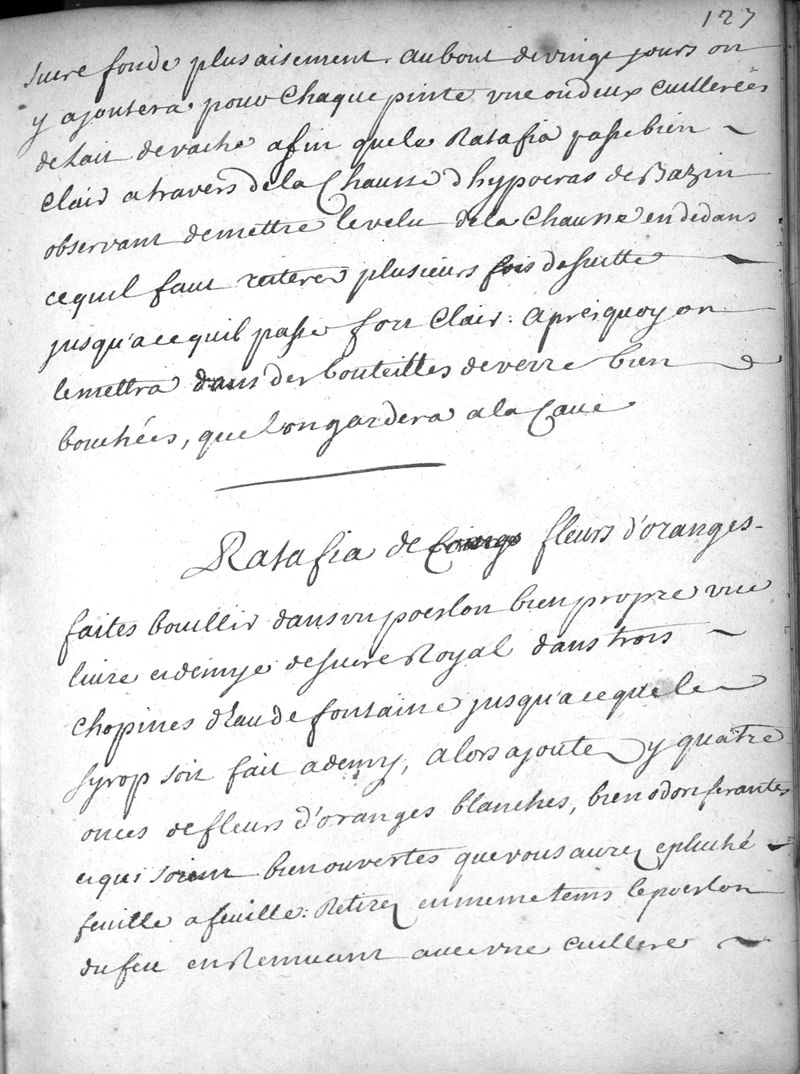 127
sucre fonde plus aisement. au bout de vingt jours on
y ajoutera pour chaque pinte une ou deux cuillerées
de Lait de vache afin que le Ratafia passe bien
clair a travers de la Chausse d'hypocras de Bazin
observant de mettre le velu de la Chausse en dedans
ce quil faut reiterer plusieurs fois de suitte
jusqu'a ce quil passe fort clair. apres quoy on
le mettra dans des bouteilles de verre bien
bouchées, que Lon gardera a la Cave
Ratafia de fleurs d'oranges
faites bouillir dans un poeslon bien propre une
livre et demye de sucre Royal dans trois
chopines d'Eau de fontaine jusqu'a ce que le
syrop soit fait a demy, alors ajoutez y quatre
onces de fleurs d'oranges blanches, bien odoriferantes
et qui soient bien ouvertes que vous aurez epluché
feuille a feuille. Retirez en meme tems le poeslon
du feu en Remuant avec une cuillere